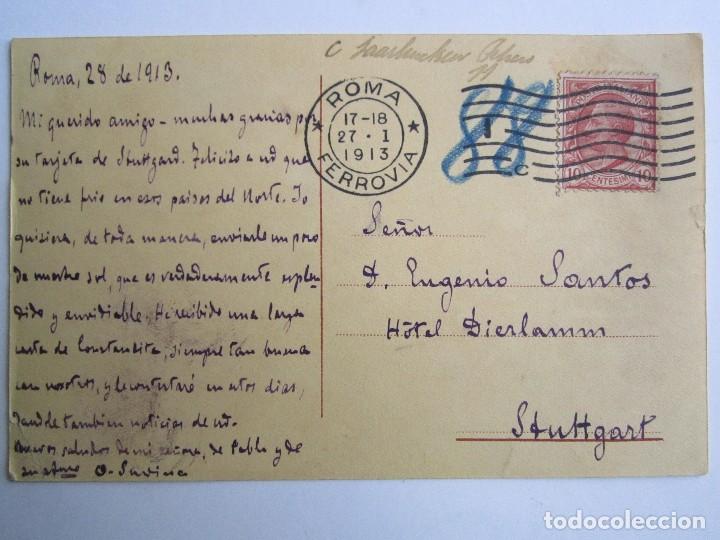 Roma, 28 de 1913.
Mi querido amigo – muchas gracias por
su tarjeta de Stuttgard. Felicito a ud que
no tiene frio en esos paises del Norte. Yo
quisiera, de toda manera, enviarle un poco
de nuestro sol, que es verdaderamente esplen
dido y envidiable. He recibido una larga
carta de Constancita, siempre tan buena
con nosotros, y le contestaré en estos dias,
dandole tambien noticias de ud.
saludos de mi señora, de Pablo y de
su
C Saarbrucken
88
ROMA
17-18
27·1
1913
FERROVIA
C
10 CENTESIMI 10
Señor
D. Eugenio Santos
Hôtel Dierlamm
Stuttgart
todocoleccion